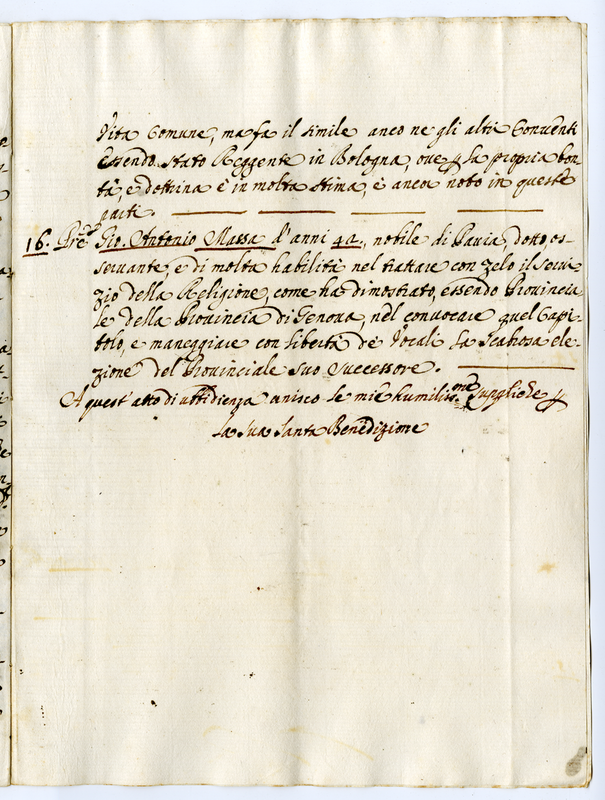 Vita Comune, ma fa il simile anco ne gli altri Conventi
Essendo stato Reggente in Bologna, oue p la propria bon
tà, e dottrina è in molta stima, è ancor noto in queste
parti.
16. Pre Gio. Antonio Massa d'anni 42, nobile di Pauia, dotto, os-
seruante, e di molta habilità nel trattare con zelo il serui-
zio della Religione, come ha dimostrato, essendo Prouincia-
le della Prouincia di Genoua, nel conuocare quel Capi-
tolo, e maneggiare con libertà de Vocali la scabrosa ele-
zione del Prouinciale suo successore.
A quest'atto di ubbidienza unisco le mie humilissme suppliche p
la sua Santa Benedizione